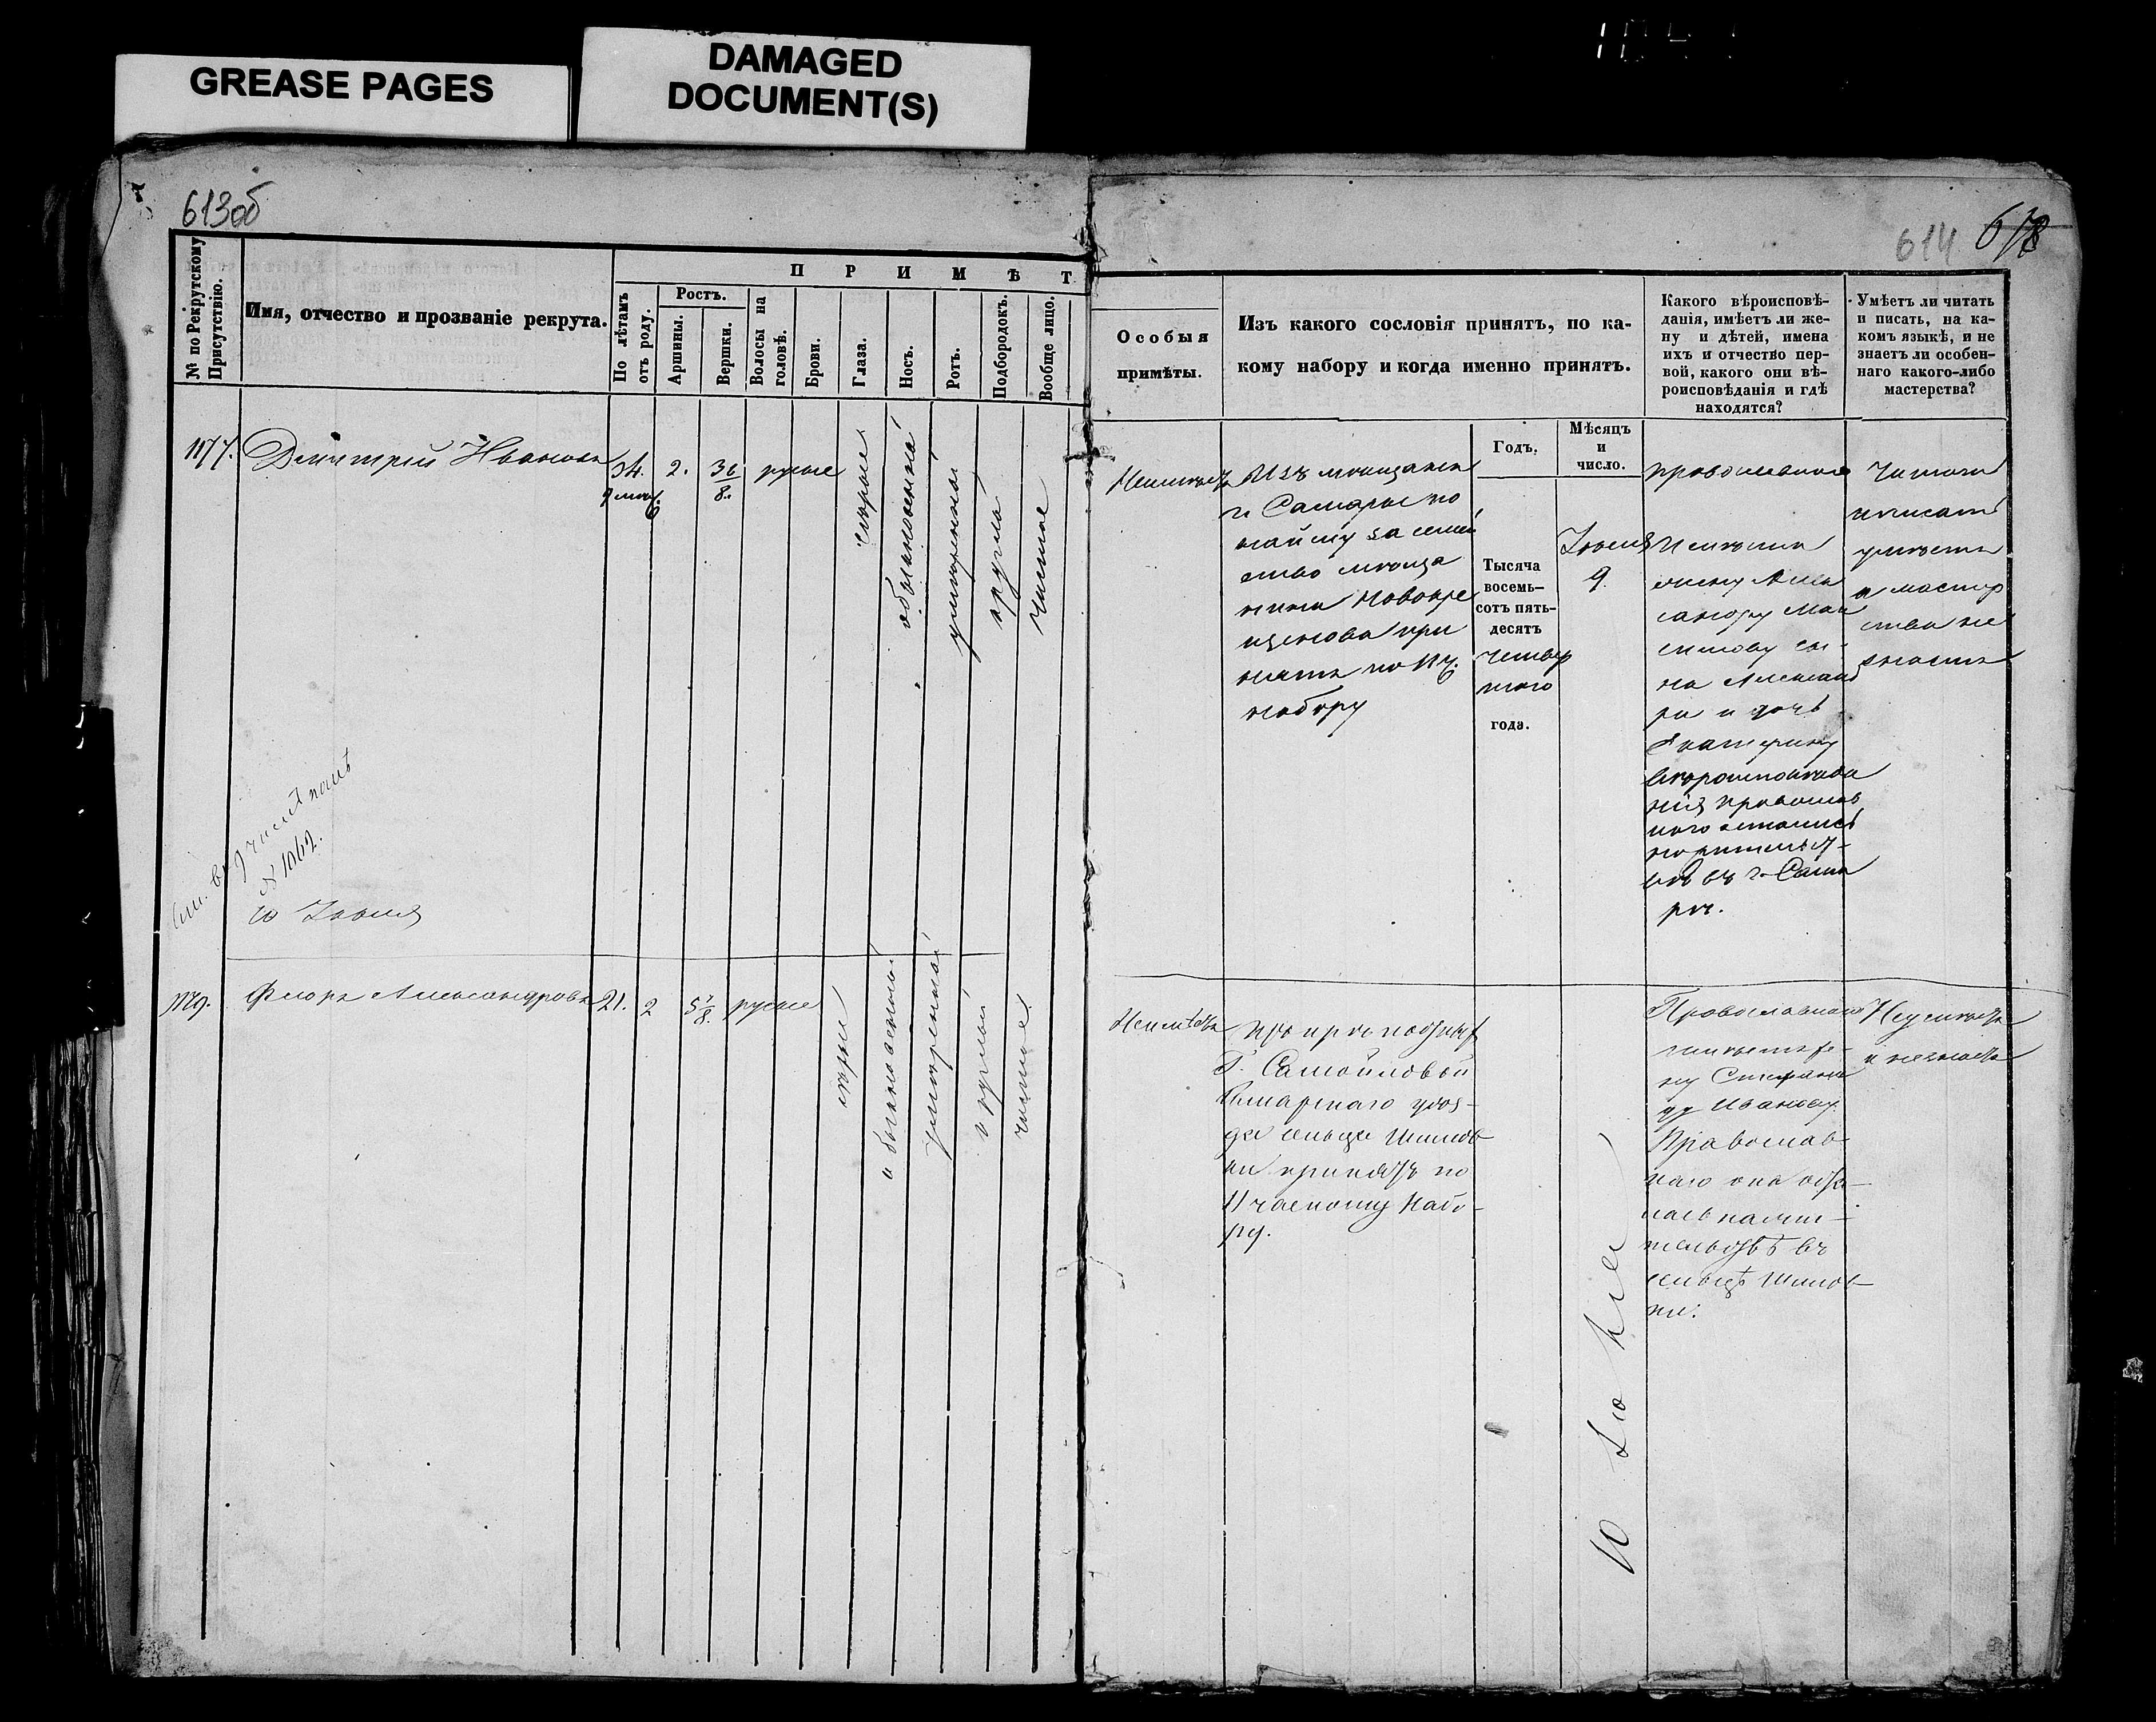 GREASE PAGES
DAMAGED
DOCUMENT(S)
613об
614
№ по Рекрутскому
Присутствію.
Имя, отчество и прозваніе рекрута.
П Р И М Ѣ Т
По лѣтамъ
отъ роду.
Ростъ.
Аршины.
Вершки.
Волосы на
головѣ.
Брови.
Глаза.
Носъ.
Ротъ.
Подбородокъ.
Вообще лицо.
Особыя
примѣты.
Изъ какого сословія принятъ, по ка-
кому набору и когда именно принятъ.
Какого вѣроисповѣ-
данія, имѣетъ ли же-
ну и дѣтей, имена
ихъ и отчество пер-
вой, какого они вѣ-
роисповѣданія и гдѣ
находятся?
Умѣетъ ли читать
и писать, на ка-
комъ языкѣ, и не
знаетъ ли особен-
наго какого-либо
мастерства?
Годъ.
Мѣсяцъ
и
число.
1177.
Дмитрій Ивановъ
34.
2.
3 6/8.
русые
сѣрые
обыкновенной
умѣренной
круглой
чистое
Неимѣетъ
Изъ мѣщанъ
г. Самары по
найму за семей
ство мѣща
нина Новокре
щенова при
нятъ по 11 ч.
набору
Тысяча
восемь-
сотъ пять-
десятъ
четвер
таго
года.
Іюня
9.
православнаго
Имѣетъ
жену Алек
сандру Мак
симову сы-
на Александ
ра и дочь
Екатерину
вѣроисповѣда
нія православ
наго остались
на жительст-
вѣ въ г. Сама
рѣ.
Читать
и писать
умѣетъ
а мастер
ства не
знаетъ
№ 1062.
10 Іюня
1179.
Флоръ Александровъ
21.
2
5 7/8.
русые
сѣрые
обыкновенной
умѣренной
круглой
чистое
Неимѣетъ
Г. Самойловой
Самарскаго уѣз-
да сельца Шилов-
ки принятъ по
11 частному набо-
ру.
10 Іюня
Православнаго
имѣетъ же-
ну Степани
ду Иванову
Православ-
наго она оста-
лась на жи-
тельствѣ въ
сельцѣ Шилов-
ки.
Неумѣетъ
и незнаетъ